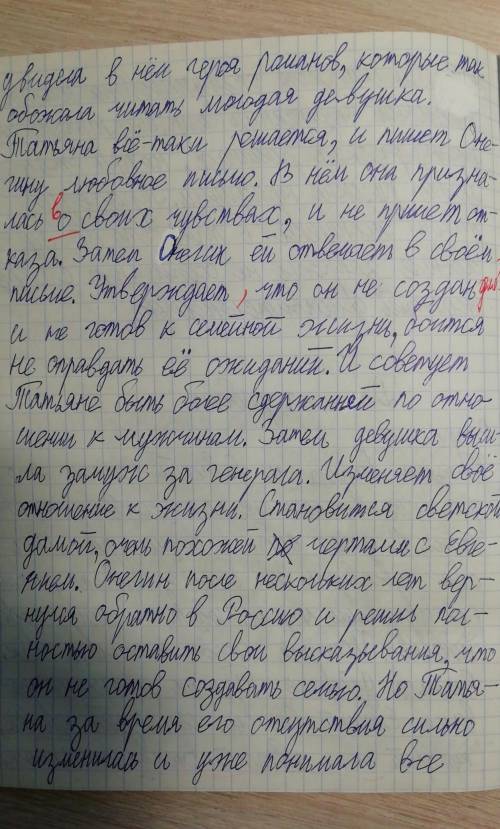 увидела в нём героя романов, которые так
обожала читать молодая девушка.
Татьяна всё-таки решается, и пишет Оне-
гину любовное письмо. В нём она призна-
лась в о своих чувствах, и не примет от-
каза. Затем Онегин ей отвечает в своём
письме. Утверждает, что он не создан для
и не готов к семейной жизни, боится
не оправдать её ожиданий. И советует
Татьяне быть более сдержанней по отно-
шении к мужчинам. Затем девушка выш-
ла замуж за генерала. Изменяет своё
отношение к жизни. Становится светской
дамой, очень похожей чертами с Евге-
нием. Онегин после нескольких лет вер-
нулся обратно в Россию и решил пол-
ностью оставить свои высказывания, что
он не готов создавать семью. Но Татья-
на за время его отсутствия сильно
изменилась и уже понимала все